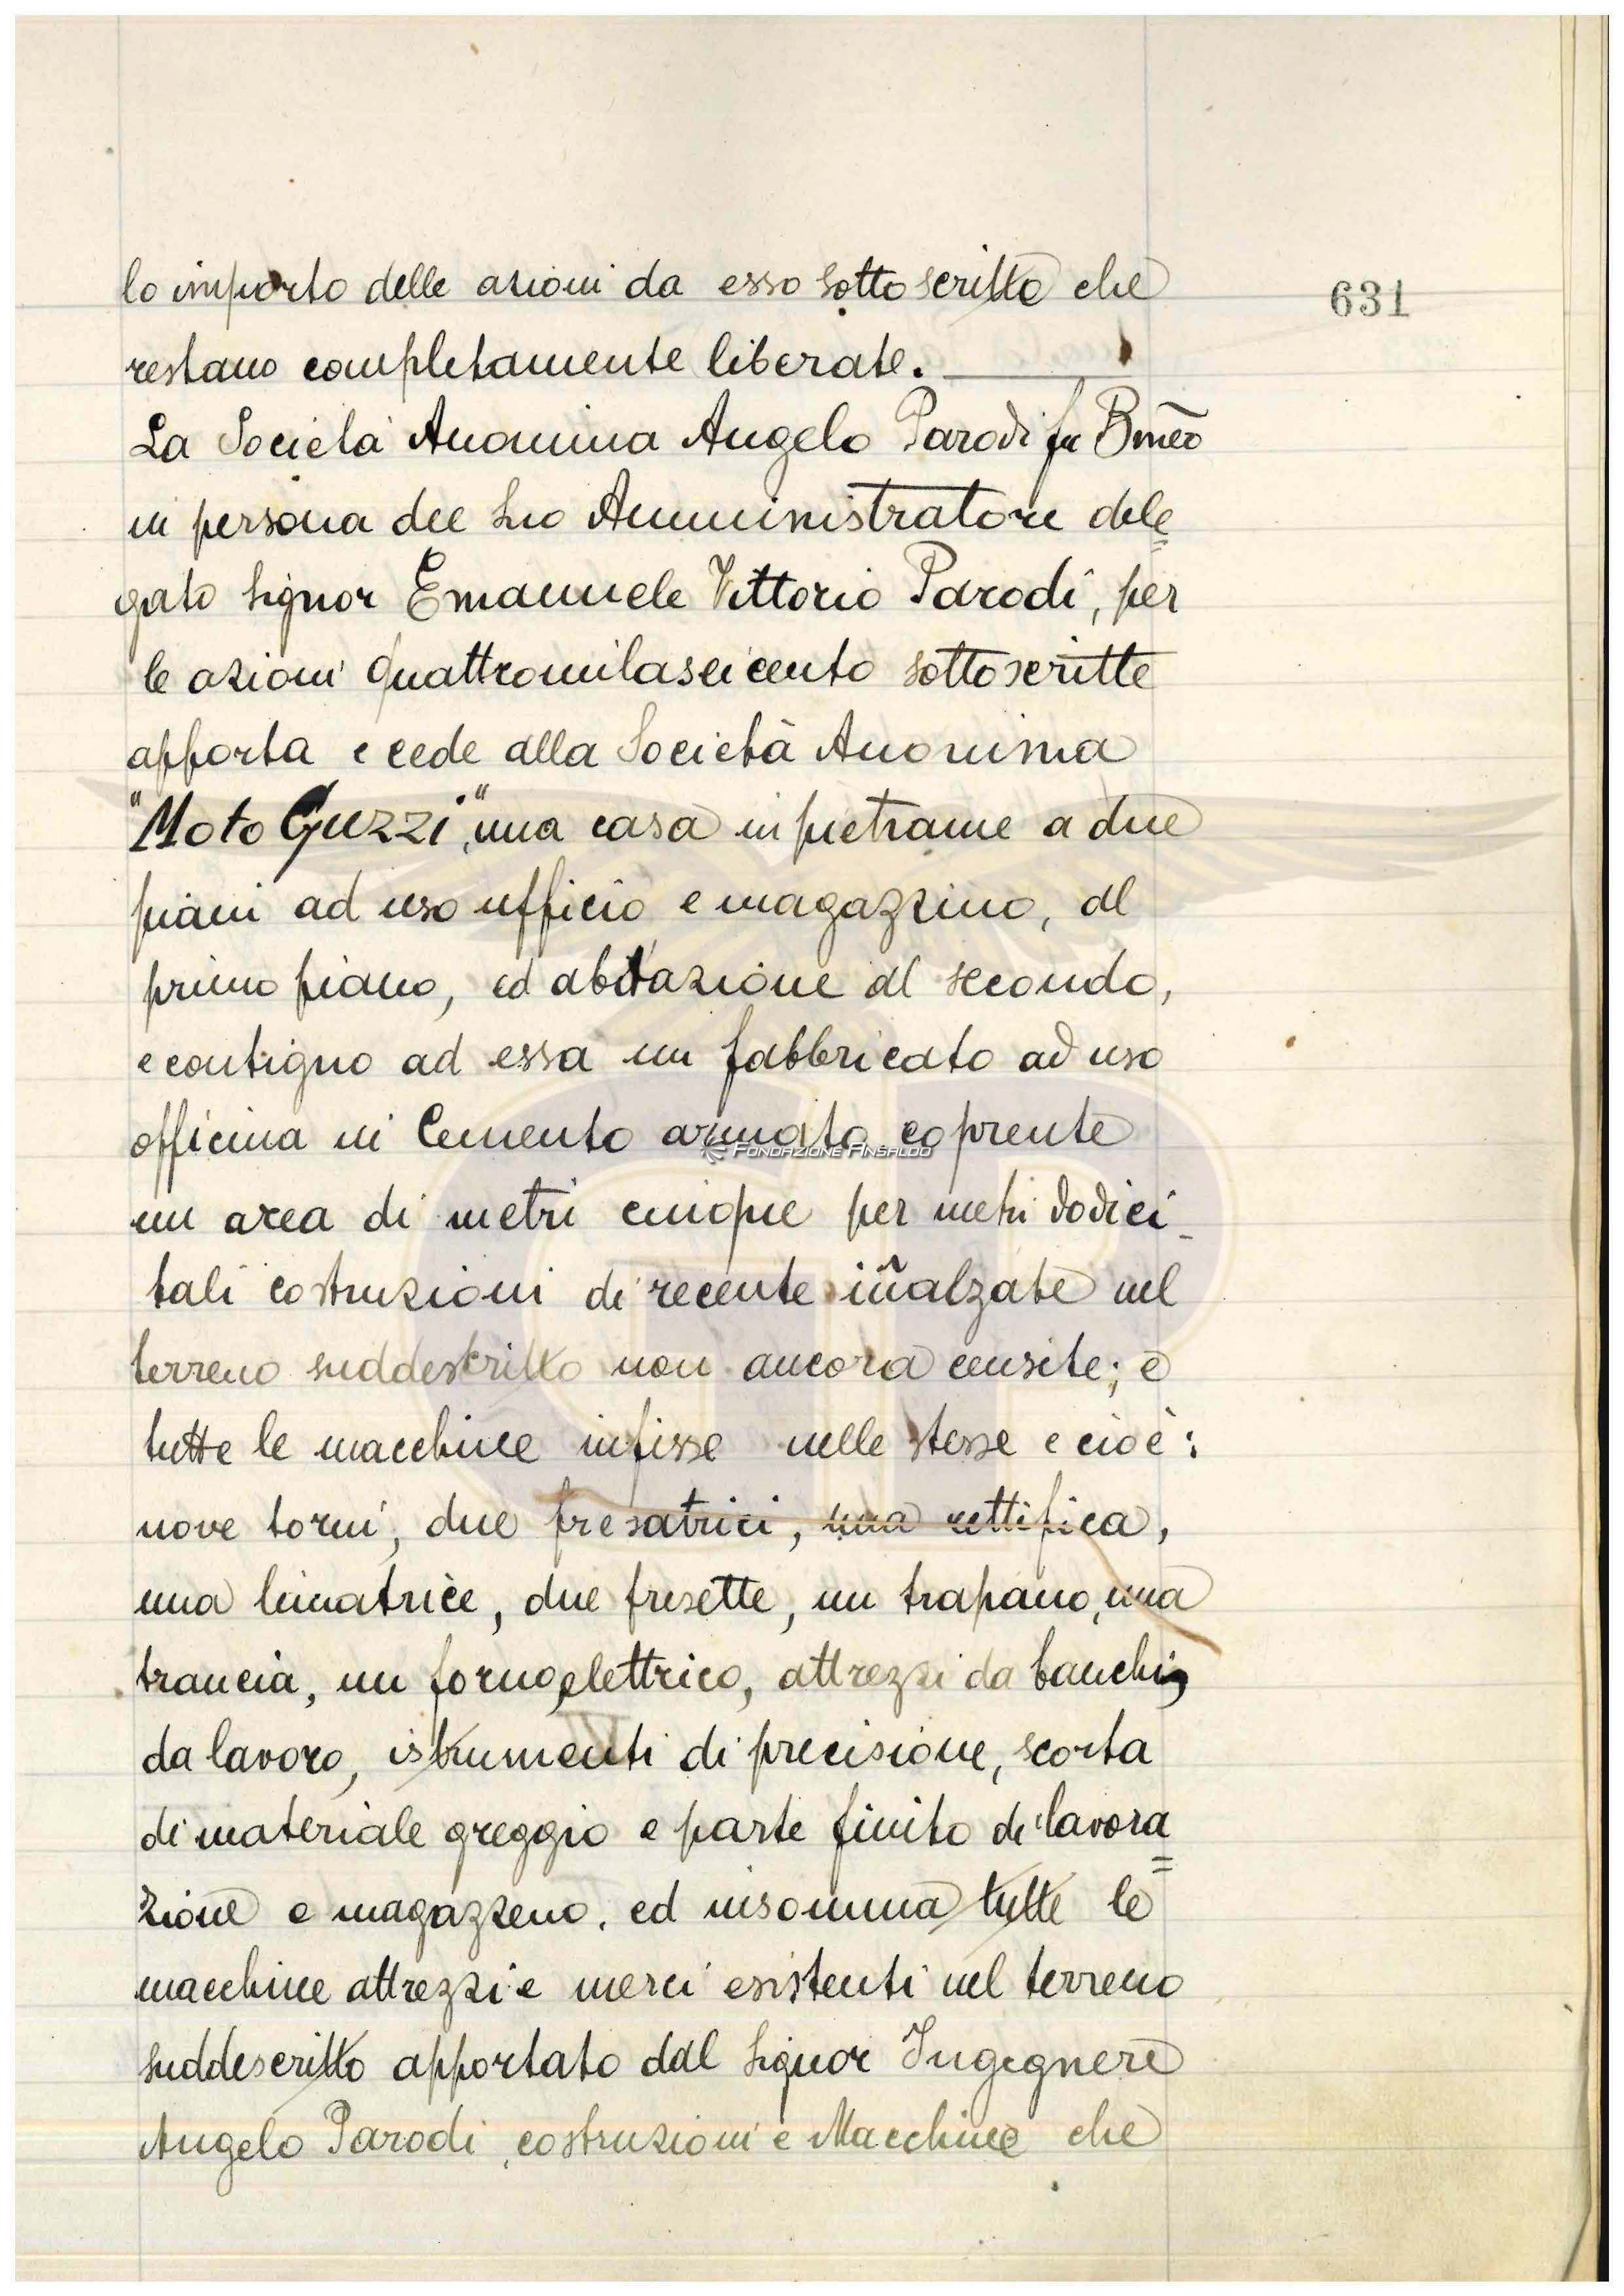 lo importo delle azioni da esso sottoscritte che
631
restano completamente liberate.
La Società Anonima Angelo Parodi fu Bmeo
in persona del suo Amministratore dele=
gato signor Emanuele Vittorio Parodi, per
le azioni quattromilaseicento sottoscritte
apporta e cede alla Società Anonima
"Moto Guzzi", una casa in pietrame a due
piani ad uso ufficio e magazzino, al
primo piano, ed abitazione al secondo,
e contiguo ad essa un fabbricato ad uso
officina in Cemento armato coprente
FONDAZIONE ANSALDO
un area di metri cinque per metri dodici_
tali costruzioni di recente iñalzate nel
terreno suddescritto non ancora censite; e
tutte le macchine infisse nelle stesse e cioè:
nove torni, due fresatrici, una rettifica,
una limatrice, due fresette, un trapano, una
trancia, un forno elettrico, attrezzi da banchi,
da lavoro, istrumenti di precisione, scorta
di materiale greggio e parte finito di lavora=
zione e magazzeno, ed insomma tutte le
macchine attrezzi e merci esistenti nel terreno
suddescritto apportato dal signor Ingegnere
Angelo Parodi, costruzioni e Macchine che